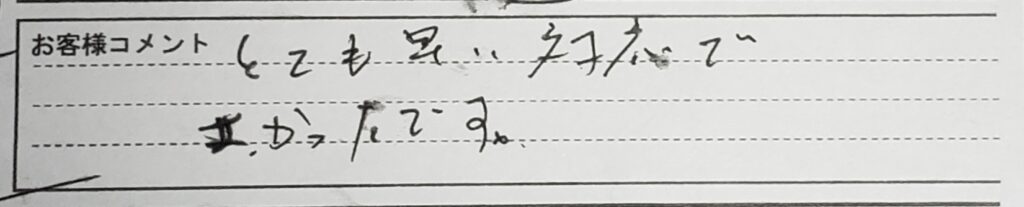 お客様コメント
とても早い対応で
よかったです。